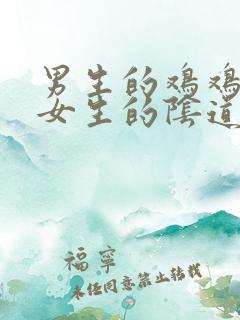 男生的鸡鸡
女生的陰道
福寧
未经同意禁止转载